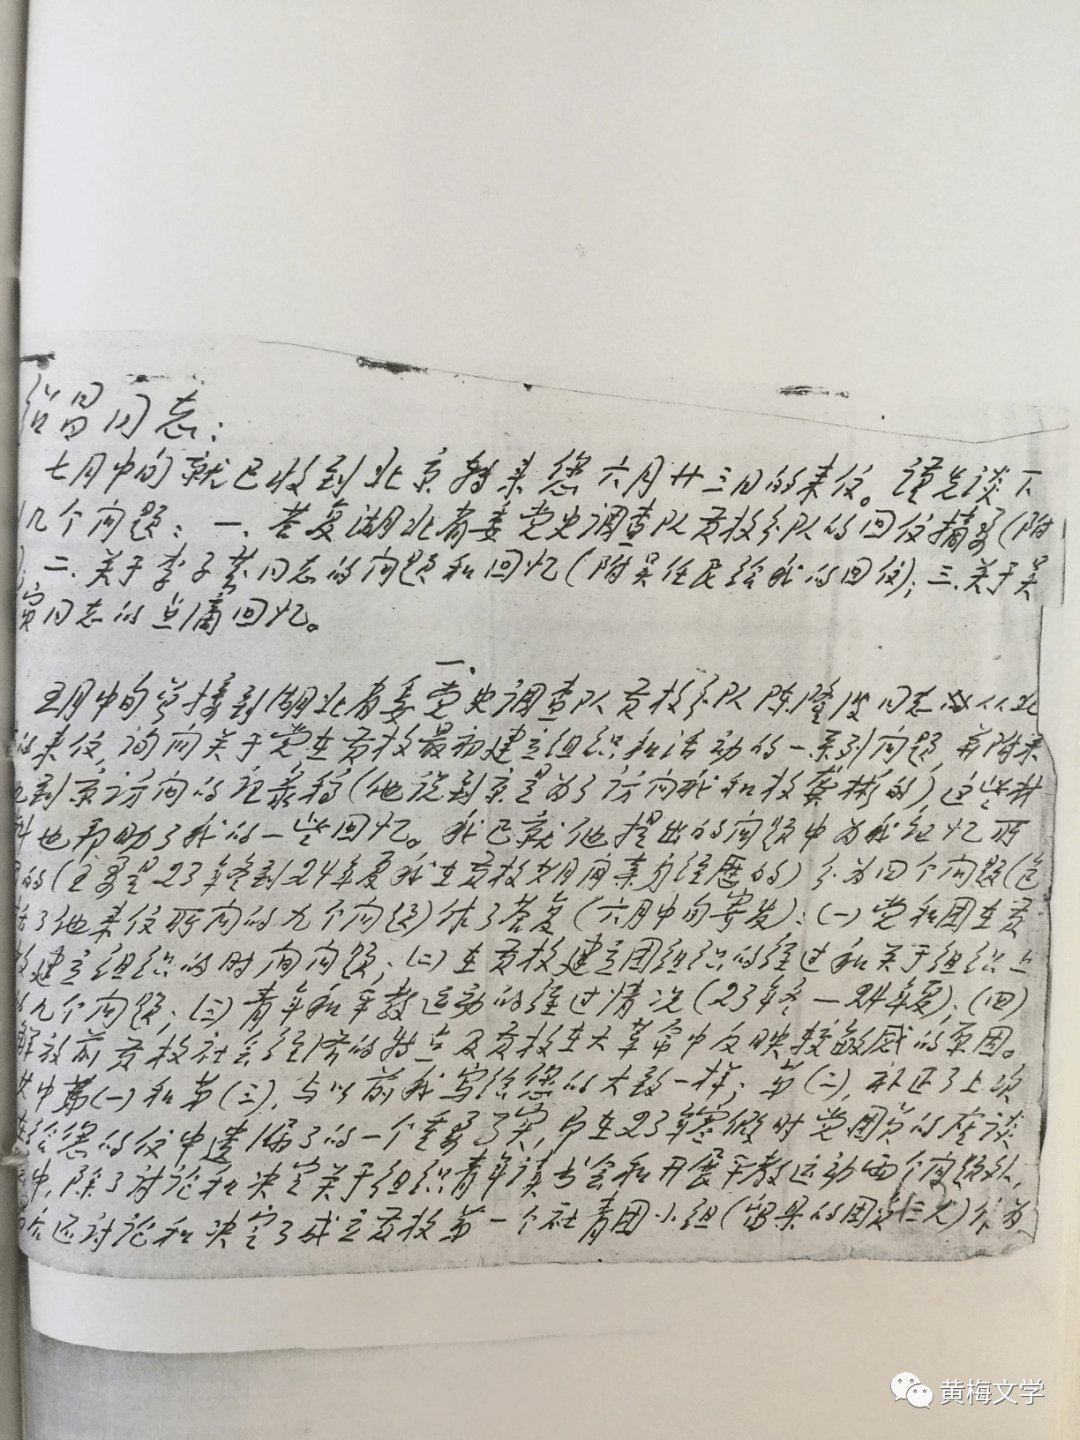 绍昌同志:
七月中旬就已收到北京转来您六月廿三日的来信。谨先谈下
几个问题:一、答复湖北省委党史调查队黄梅分队的回信摘要(附
二、关于李子芬同志的问题和回忆(附吴任民给我的回信);三、关于吴
同志的点滴回忆。
一、
五月中旬曾接到湖北省委党史调查队黄梅分队陈隆波同志从北
的来信,询问关于党在黄梅最初建立组织和活动的一系列问题,并附来
到京访问的记录稿(他说到京是为了访问我和梅龚彬的),这些材
料也帮助了我的一些回忆。我已就他提出的问题中为我记忆所
的(主要是23年冬到24年夏我在黄梅期间亲身经历的)分为四个问题(包
括了他来信所问的九个问题)作了答复(六月中旬寄发):(一)党和团在黄
梅建立组织的时间问题;(二)在黄梅建立团组织的经过和关于组织上
的几个问题;(三)青年和平教运动的经过情况(23年冬—24年夏);(四)
解放前黄梅社会经济的特点及黄梅在大革命中反映较敏感的原因。
其中第(一)和第(三),与以前我写给您的大致一样;第(二),补述了上次
给您的信中遗漏了的一个重要事实,即在23年寒假时党团员的座谈
中,除了讨论和决定关于组织青年读书会和开展平教运动两个问题外,
还讨论和决定了成立黄梅第一个社青团小组(留果的团员三人)作为
黄梅文学